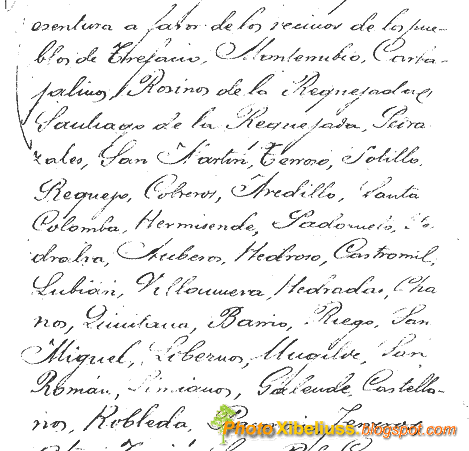 escritura a favor de los vecinos de los pue-
blos de Trefacio, Montenubio, Carba-
jalinos, Rosinos de la Requejada,
Santiago de la Requejada, Seira
zales, San Martin, Terroso, Sotillo,
Requejo, Cobreros, Avedillo, Santa
Colomba, Hermisende, Padornelo, Pe-
dralba, Hedroso, Castromil,
Lubián, Villanueva, Hedradas, Cha
nos, Quintana, Barrio, Riego, San
Miguel, Lobeznos, Ungilde, San
Román, Limianos, Galende, Castella-
nos, Robleda,
Photo Xibeliuss.blogspot.com